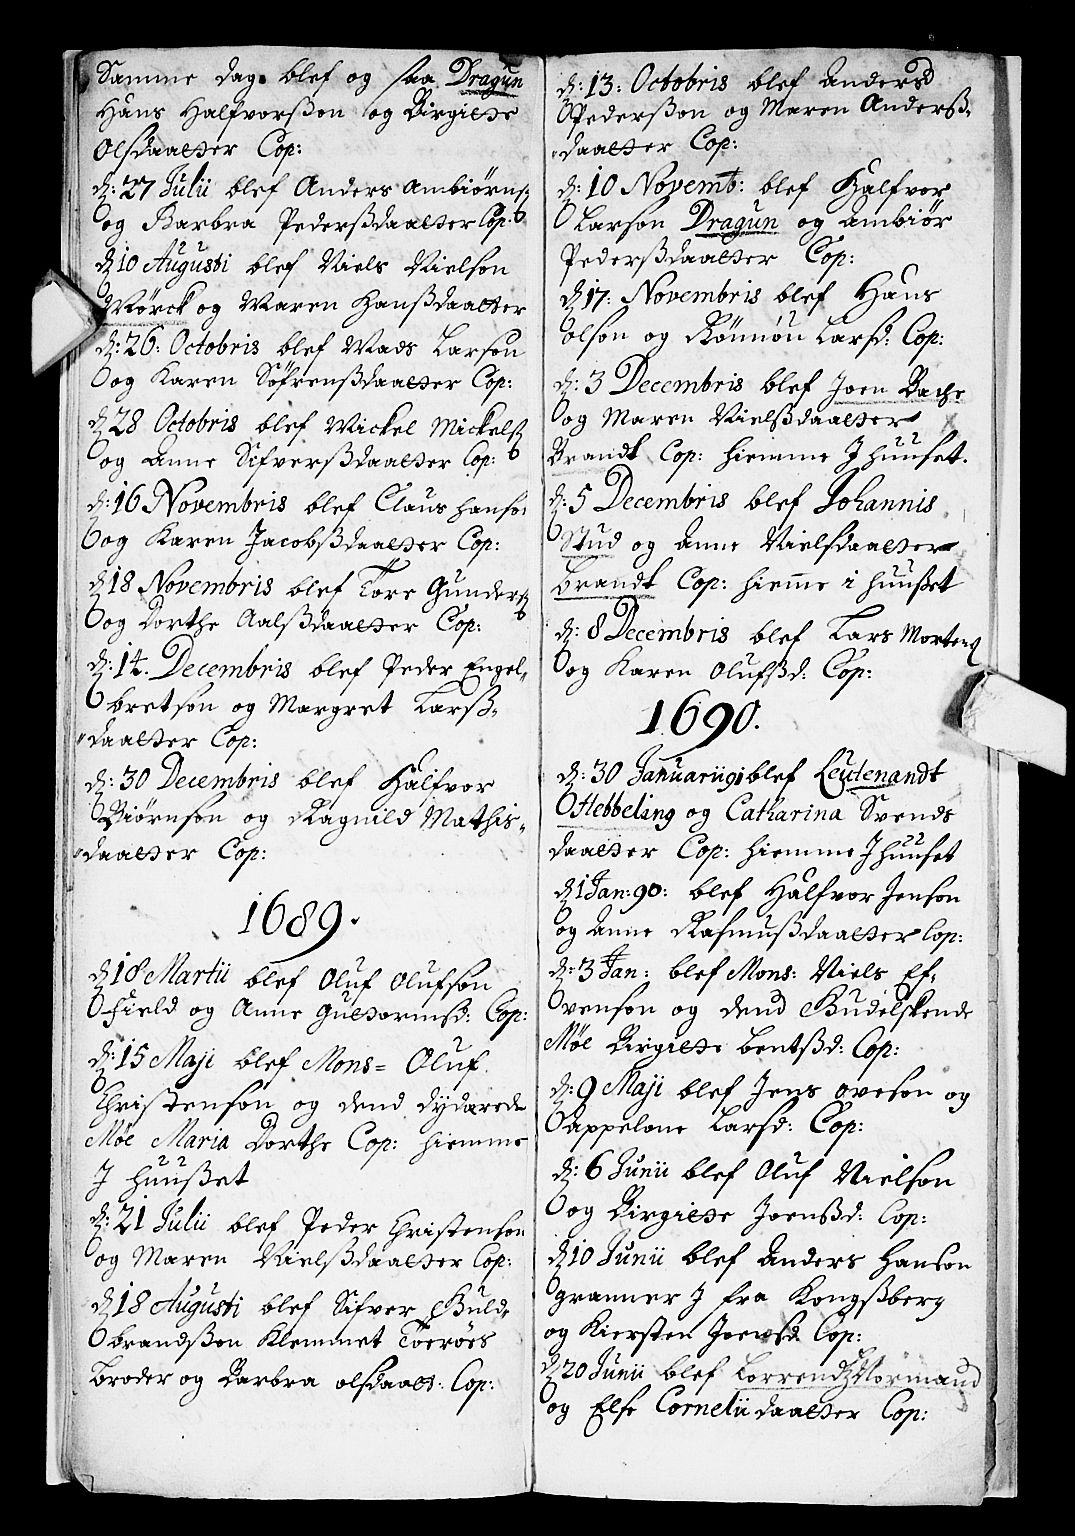 Samme dag blef og saa Dragun
Hans Halfvorsßon og Birgitte
Olsdaatter Cop:
d: 27 Julii blef Anders Ambiørns:
og Barbra Pedersßdaatter Cop:
d: 10 Augusti blef Niels Nielson
Mørck og Maren Hansßdaatter
d: 26: Octobris blef Mads Larson
og Karen Søfrensßdaatter Cop:
d: 28 Octobris blef Mickel Mickelß
og Anne Sifversßdaatter Cop:
d: 16 Novembris blef Claus Hanso:
og Karen Jacobsßdaatter Cop:
d: 18 Novembris blef Tore Gunderß
og Dorthe Aalsßdaatter Cop:
d: 14. Decembris blef Peder Engel„
bretson og Margret Larsß„
„daatter Cop:
d: 30 Decembris blef Halfvor
Biørnson og Ragnild Mathis„
„daatter Cop:
1689.
d: 18 Martii blef Oluf Olufson
Field og Anne Guttormsd: Cop:
d: 15 Maji blef Mons= Oluf
Christenson og dend dydærede
Møe Maria Dorthe Cop: hiemme
J huußet
d: 21 Julii blef Peder Christenson
og Maren Nielsßdaatter Cop:
d: 18 Augusti blef Sifver Guld„
brandsßon Klemmet
Broder og Barbra olsdaatt: Cop:
d: 13: Octobris blef Anders
Pedersßon og Maren Andersß„
„daatter Cop:
d: 10 Novemb: blef Halfvor
Larson Dragun og Ambiør
Pedersßdaatter Cop:
d: 17: Novembris blef Hans
olson og Rønnøu Larsd: Cop:
d: 3 Decembris blef Joen Bache
og Maren Nielsßdaatter
Brandt Cop: hiemme J huuset.
d: 5 Decembris blef Johannis
Stud og Anne Nielsdaatter
Brandt Cop: hiem̅e i huußet
d: 8 Decembris blef Lars Mortenß
og Karen Olufsßd: Cop:
1690.
d: 30 Januarii 91 blef Leutenandt
Hebbeling og Catharina Svends
daatter Cop: hiemme J huuset
d: 1 Jan: 90: blef Halfvor Jenson
og Anne Rasmusßdaatter Cop:
d: 3 Jan: blef Mons: Niels Ef„
venson og dend Gudelskende
Møe Birgitte Bentsßd: Cop:
d: 9 Maji blef Jens oveson og
appelone Larsd: Cop:
d: 6 Junii blef Oluf Nielson
og Birgitte Joensßd: Cop:
d: 10 Junii blef Anders Hanson
granner J fra Kongsßberg
og Kiersten Joensd Cop:
d: 20 Junii blef Lorrendtz Normand
og Else Cornelii daatter Cop: